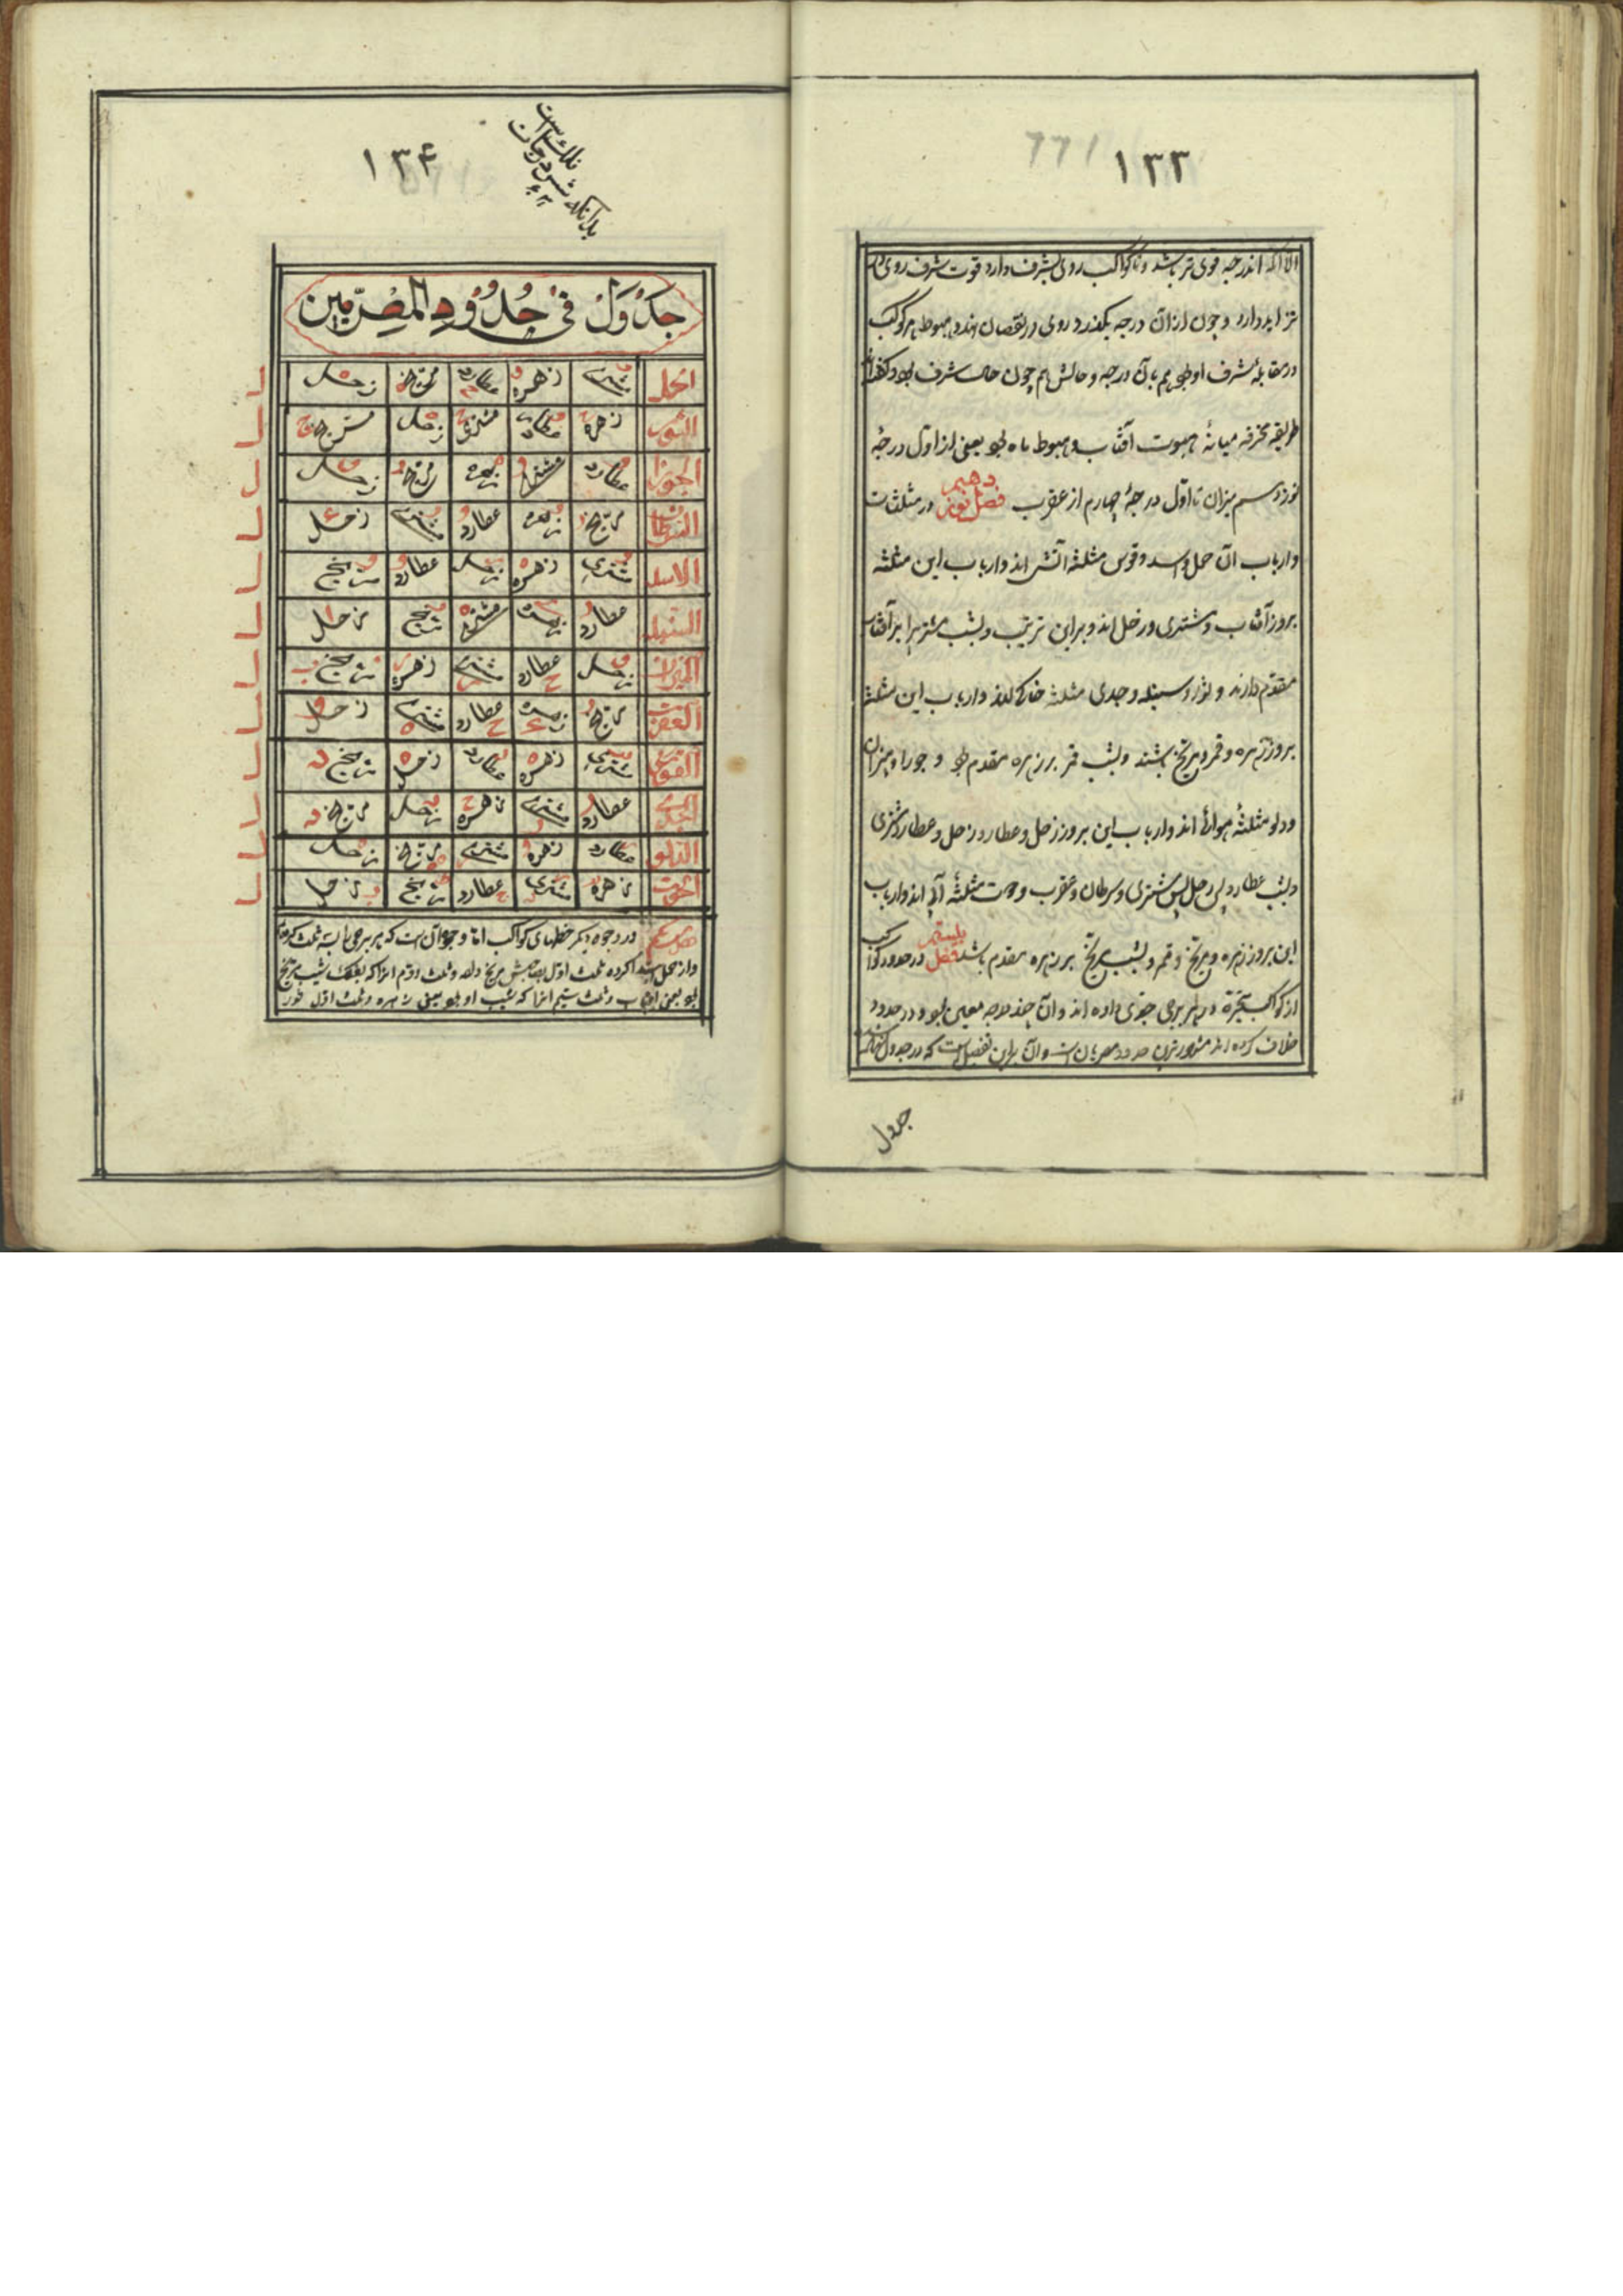 ۱۳۳
الا آنکه اندرجه قوی تر باشد و تا کواکب روی بشرف دارد قوت شرف روی
تزاید دارد و چون از آن درجه بگذرد روی در نقصان نهد و هبوط هر کوکب
در مقابلهٔ شرف او بود هم بآن درجه و حالش هم چون حال شرف بود و گفته‌اند
طریقه محرقه میانهٔ هبوط آفتاب و هبوط ماه بود یعنی از اول درجهٔ
نوزدهم میزان تا اول درجهٔ چهارم از عقرب فصل در مثلثات
و ارباب آن حمل و اسد و قوس مثلثه آتشی اند و ارباب این مثلثه
بروز آفتاب و مشتری و زحل اند و براین ترتیب و بشب مشتریرا بر آفتاب
مقدم دارند و ثور و سنبله و جدی مثلثه خاکی اند و ارباب این مثلثه
بروز زهره و قمر و مریخ باشند و بشب قمر بر زهره مقدم بود و جوزا و میزان
و دلو مثلثهٔ هوائی اند و ارباب این بروز زحل و عطارد و زحل و عطارد و مشتری
و بشب عطارد پس زحل پس مشتری و سرطان و عقرب و حوت مثلثهٔ آبی اند و ارباب
این بروز زهره و مریخ و قمر و بشب مریخ بر زهره مقدم باشد فصل بیستم در حدود کواکب
از کواکب متحیرة در هر برجی جزوی داده اند و آن چند درجه معین بود و در حدود
خلاف کرده اند مشهورترین حدود مصریان است و آن براین تفصیل است که در جدول
جدول
۱۳۴
بدانکه شش درجات
فلک است
جَدْوَلْ فی حُدُوْدِ المِصْرِیّین
الحمل مشتری زهره عطارد مریخ زحل
الثور زهره عطارد مشتری زحل مریخ
الجوزا عطارد مشتری زهره مریخ زحل
السرطان مریخ زهره عطارد مشتری زحل
الاسد مشتری زهره زحل عطارد مریخ
السنبله عطارد زهره مشتری مریخ زحل
المیزان زحل عطارد مشتری زهره مریخ
العقرب مریخ زهره عطارد مشتری زحل
القوس مشتری زهره عطارد زحل مریخ
الجدی عطارد مشتری زهره زحل مریخ
الدلو عطارد زهره مشتری مریخ زحل
الحوت زهره مشتری عطارد مریخ زحل
در وجوه و دیگر حظهای کواکب اما وجوه آن است که هر برجی را بسه ثلث کرده
و از حمل ابتدا کرده ثلث اول بصاحبش مریخ داده و ثلث دوم آنرا که بفلک شیب مریخ
بود یعنی آفتاب و ثلث سیم آنرا که شیب او بود یعنی زهره و ثلث اول ثور